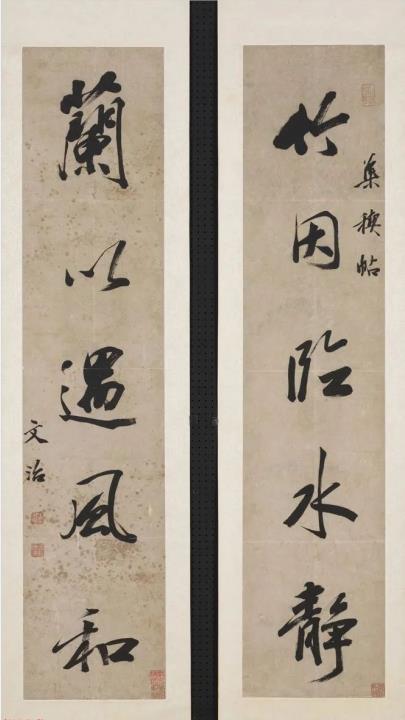 竹因臨水静
集禊帖
蘭以遇風和
文治